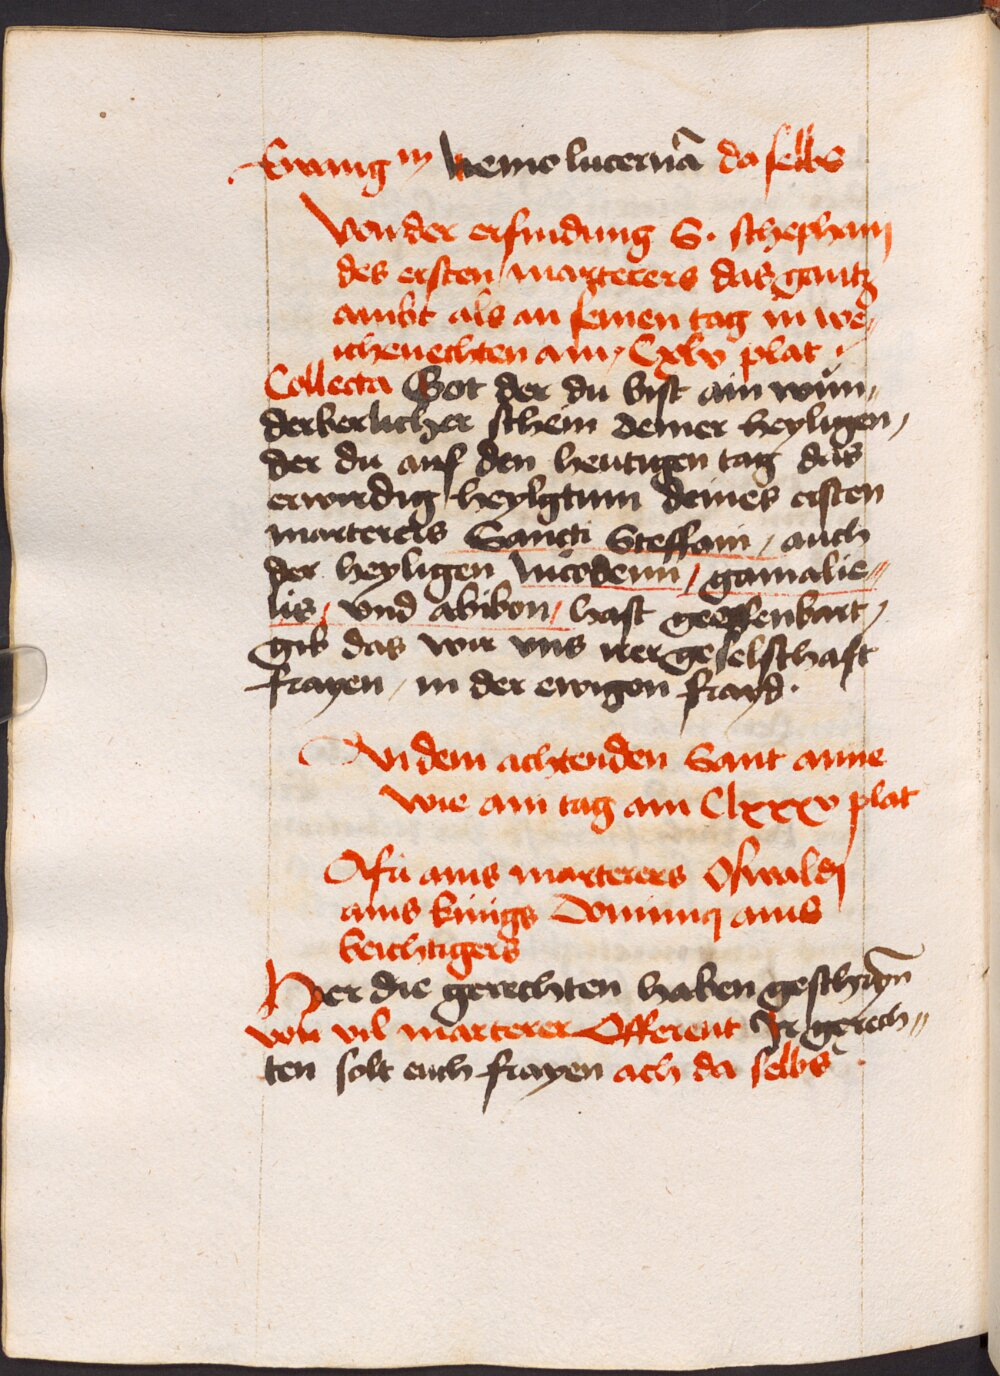 Ewang m Nemo lucernā da selbs
Von der erfindung S. schephanj
des ersten marterers das gantz
ambt als an seinen tag in we/
ichenechten am / Cxlv plat .
Collecta Got der du bist ain wun,,
derberlicher schein deiner heyligen /
der du auf den heutigen tag das
erwirdig heylgtum deines ersten
marterers Sancti Steffani / auch
der heyligen nicodemi / gamalie,,
lis / vnd abibon / hast geoffenbart /
gib das wir vns irer geselschaft
frayen / in der ewigen frayd .
An dem achtenden Sant anne
wie am tag am Clxxxv plat
Afra ains marterers Oswaldj
ains kunigs Dominicj ains
beichtigers
Her die gerechten haben geschryen
von vil marterer Offerent Ir gerech,,
ten solt euch frayen ach da selbs .